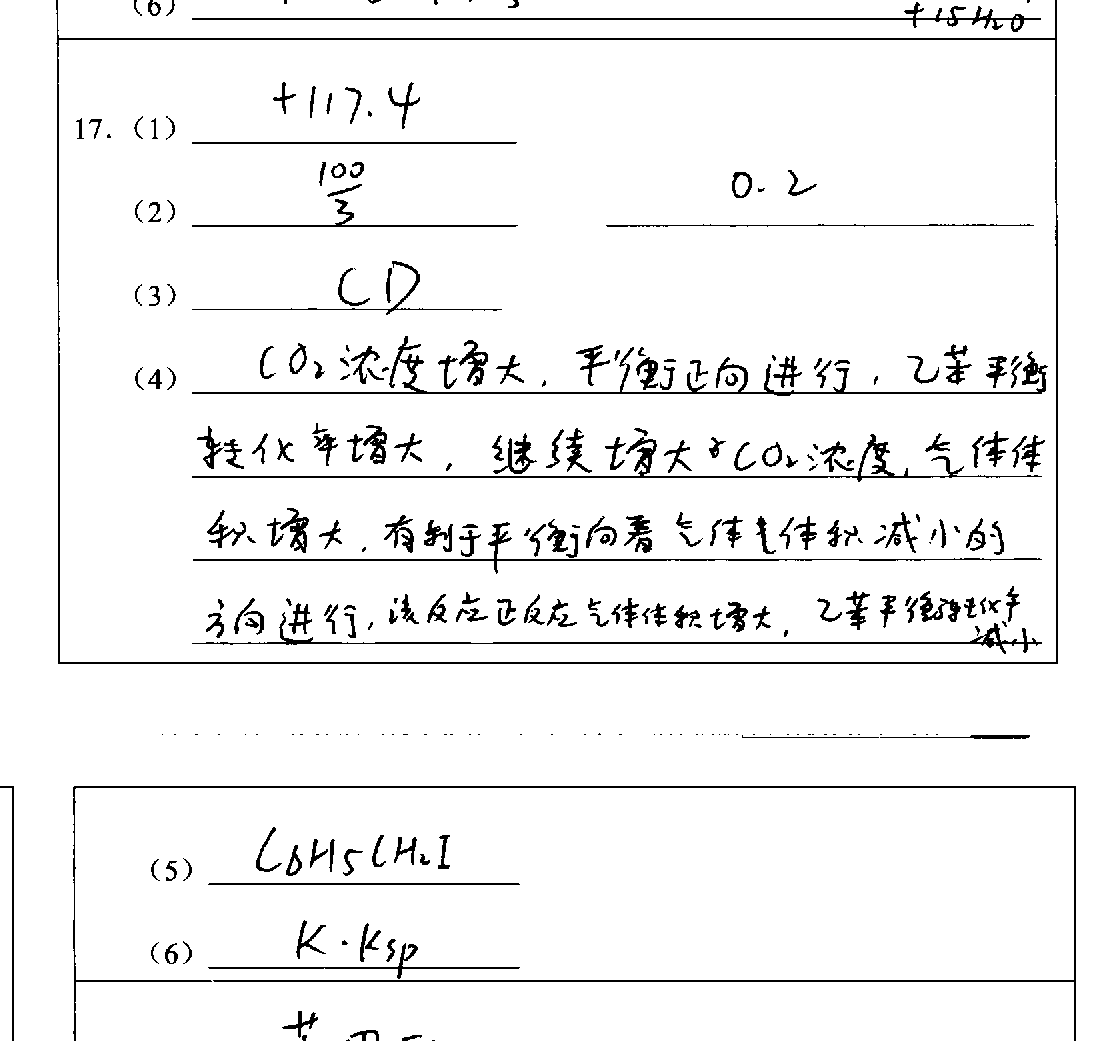 (6) +15H₂O
17.(1) +117.4
(2) 100/3 0.2
(3) CD
(4) CO₂浓度增大,平衡正向进行,乙苯平衡
转化率增大,继续增大CO₂浓度,气体体
积增大,有利于平衡向着气体体积减小的
方向进行,该反应正反应气体体积增大,乙苯平衡转化率
减小
(5) C6H5CH₂I
(6) K·Ksp